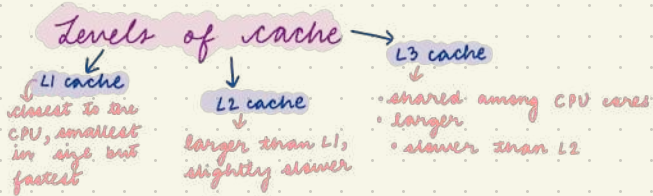 Levels of cache
L1 cache
closest to the
CPU, smallest
in size but
fastest
L2 cache
larger than L1,
slightly slower
L3 cache
• shared among CPU cores
• larger
• slower than L2